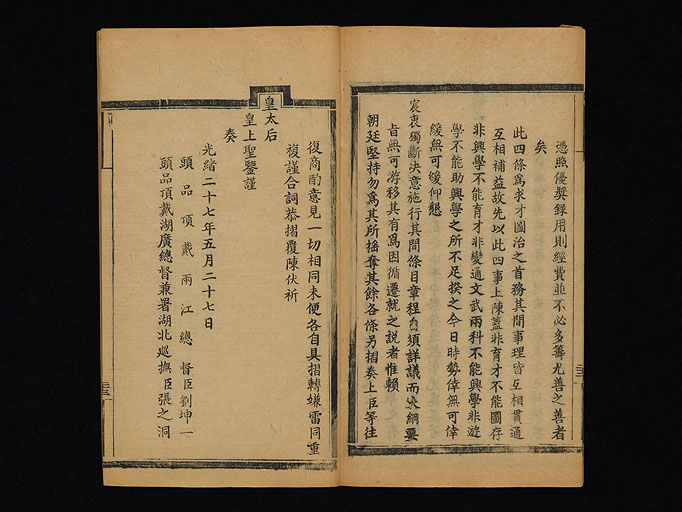 憑照優獎錄用則經費並不必多籌尤善之善者
矣
此四條為求才圖治之首務其間事理皆互相貫通
互相補益故先以此四事上陳蓋非育才不能圖存
非興學不能育才非變通文武兩科不能興學非遊
學不能助興學之所不足揆之今日時勢倖無可倖
緩無可緩仰懇
宸衷獨斷決意施行其間條目章程自須詳議而大綱要
旨無可游移其有為因循遷就之說者惟賴
朝廷堅持勿為其所搖奪其餘各條另摺奏上臣等往
復商酌意見一切相同未便各自具摺轉嫌雷同重
複謹合詞恭摺覆陳伏祈
皇太后
皇上聖鑒謹
奏
光緒二十七年五月二十七日
頭品頂戴兩江總督臣劉坤一
頭品頂戴湖廣總督兼署湖北巡撫臣張之洞